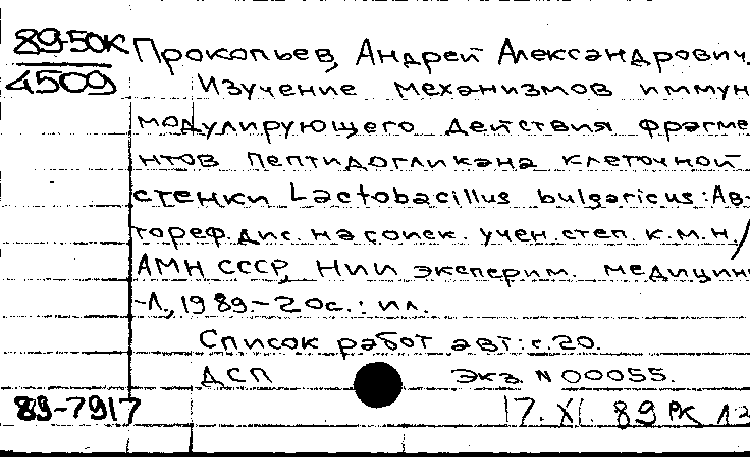 89-50К Прокопьев, Андрей Александрович.
4509 Изучение механизмов иммун
модулирующего действия фрагме
нтов пептидогликана клеточной
стенки Lactobacillus bulgaricus: Ав-
тореф. дис. на соиск. учен. степ. к.м.н./
АМН СССР, НИИ эксперим. медицин
-Л., 1989.-20с.: ил.
Список работ авт.: с.20.
ДСП Экз N 00055.
89-7917 17.XI.89 РК